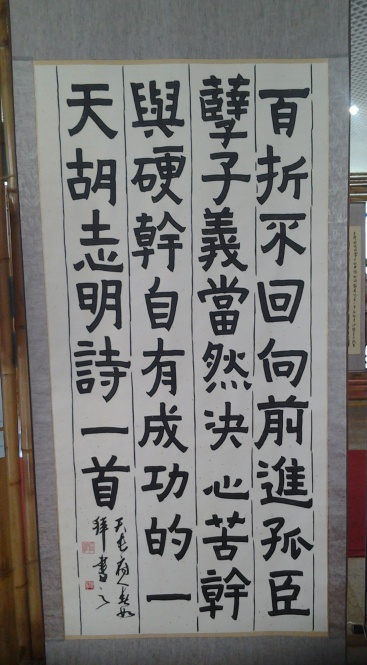 百折不回向前進孤臣
孽子義當然決心苦幹
與硬幹自有成功的一
天胡志明詩一首